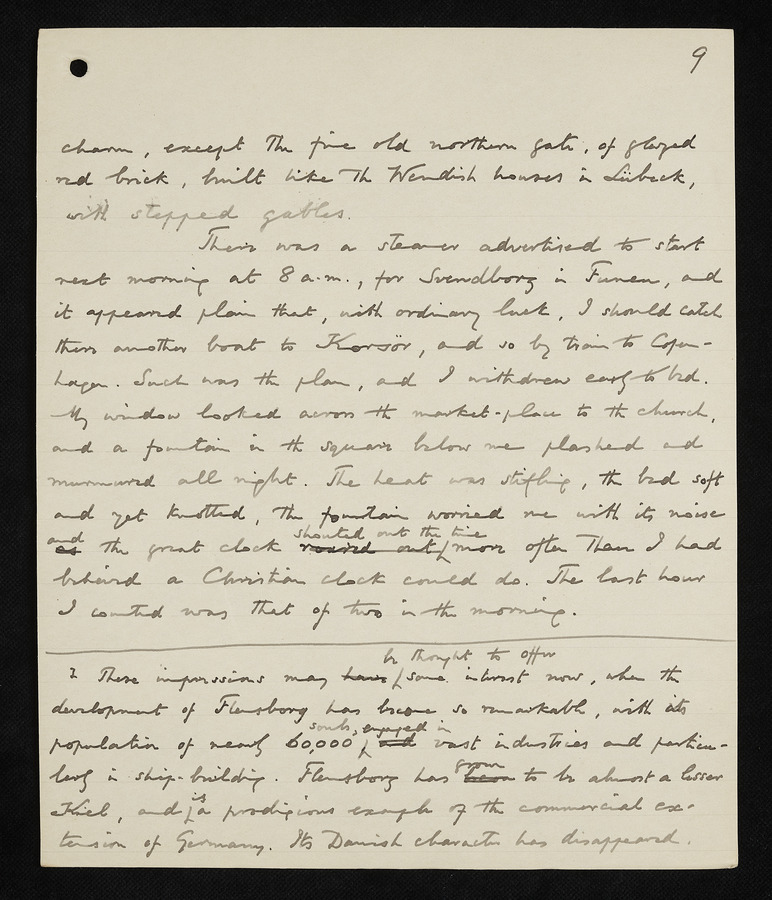 9
charm, except the fine old northern gate, of glazed
red brick, built like the Wendish houses in Lübeck,
with stepped gables.
There was a steamer advertised to start
next morning at 8 a.m., for Svendborg in Funen, and
it appeared plain that, with ordinary luck, I should catch
there another boat to Korsör, and so by train to Copen-
hagen. Such was the plan, and I withdrew early to bed.
My window looked across the market-place to the church,
and a fountain in the square below me plashed and
murmured all night. The heat was stifling, the bed soft
and yet knotted, the fountain worried me with its noise
and shouted out the time
as the great clock roared out more often than I had
believed a Christian clock could do. The last hour
I counted was that of two in the morning.
be thought to offer
1 These impressions may have some interest now, when the
development of Flensborg has become so remarkable, with its
souls, engaged in
population of nearly 60,000 and vast industries and particu-
larly in ship-building. Flensborg has been to be almost a lesser
grown
Kiel, and is a prodigious example of the commercial ex-
tension of Germany. Its Danish character has disappeared.